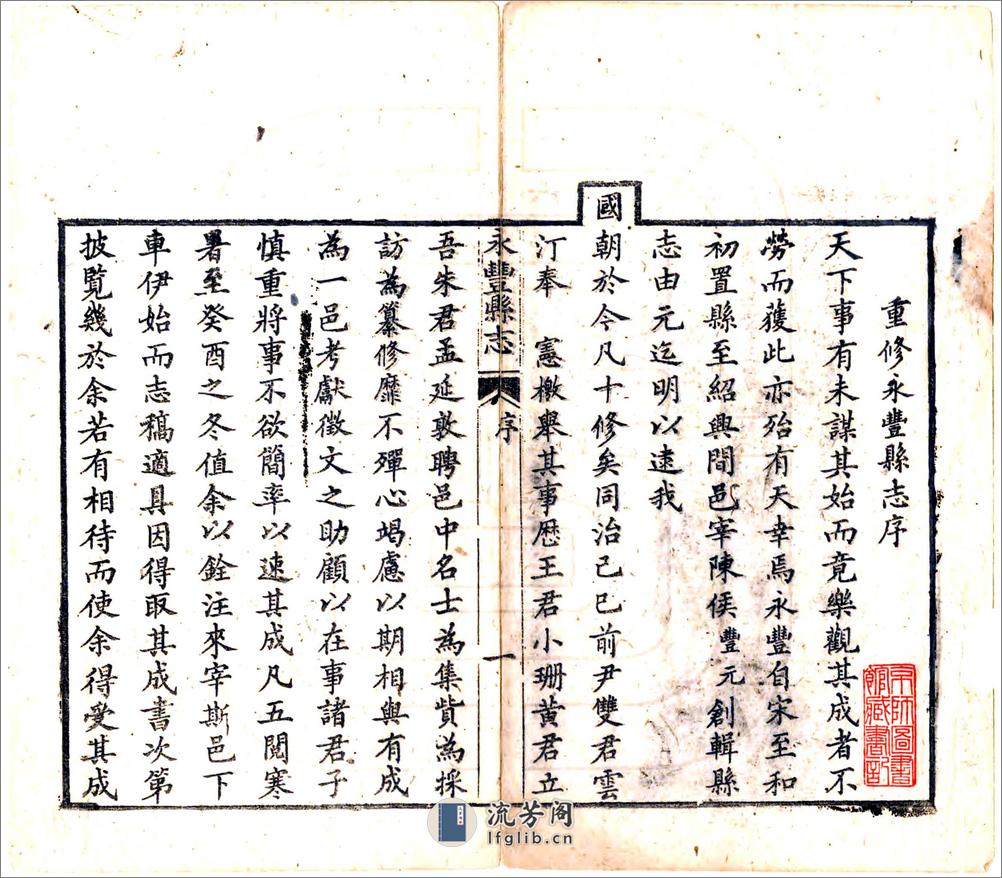 重修永豐縣志序
天下事有未謀其始而竟樂觀其成者不
勞而獲此亦殆有天幸焉永豐自宋至和
初置縣至紹興間邑宰陳侯豐元創輯縣
志由元迄明以逮我
國朝於今凡十修矣同治己巳前尹雙君雲
汀奉 憲檄舉其事歷王君小珊黃君立
永豐縣志 序 一
吾朱君孟延敦聘邑中名士為集貲為採
訪為纂修靡不殫心竭慮以期相與有成
為一邑考獻徵文之助顧以在事諸君子
慎重將事不欲簡率以速其成凡五閱寒
暑至癸酉之冬值余以銓注來宰斯邑下
車伊始而志稿適具因得取其成書次第
披覽幾於余若有相待而使余得受其成
京師圖書
館藏書記
流芳阁
lfglib.cn